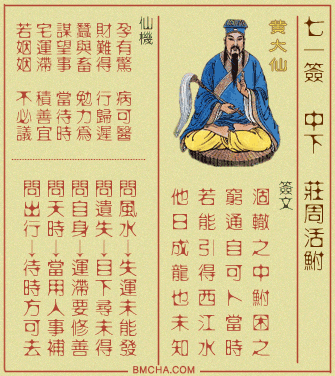 七一簽 中下 莊周活鮒
黃大仙
簽文
涸轍之中鮒困之
窮通自可卜當時
若能引得西江水
他日成龍也未知
仙機
孕有驚 病可醫
財難得 行歸遲
蠶與畜 勉力爲
謀望事 當待時
宅運滯 積善宜
若姻姻 不必議
問風水→失運未能發
問遺失→目下尋未得
問自身→運滯要修善
問天時→當用人事補
問出行→待時方可去
BMCHA.COM